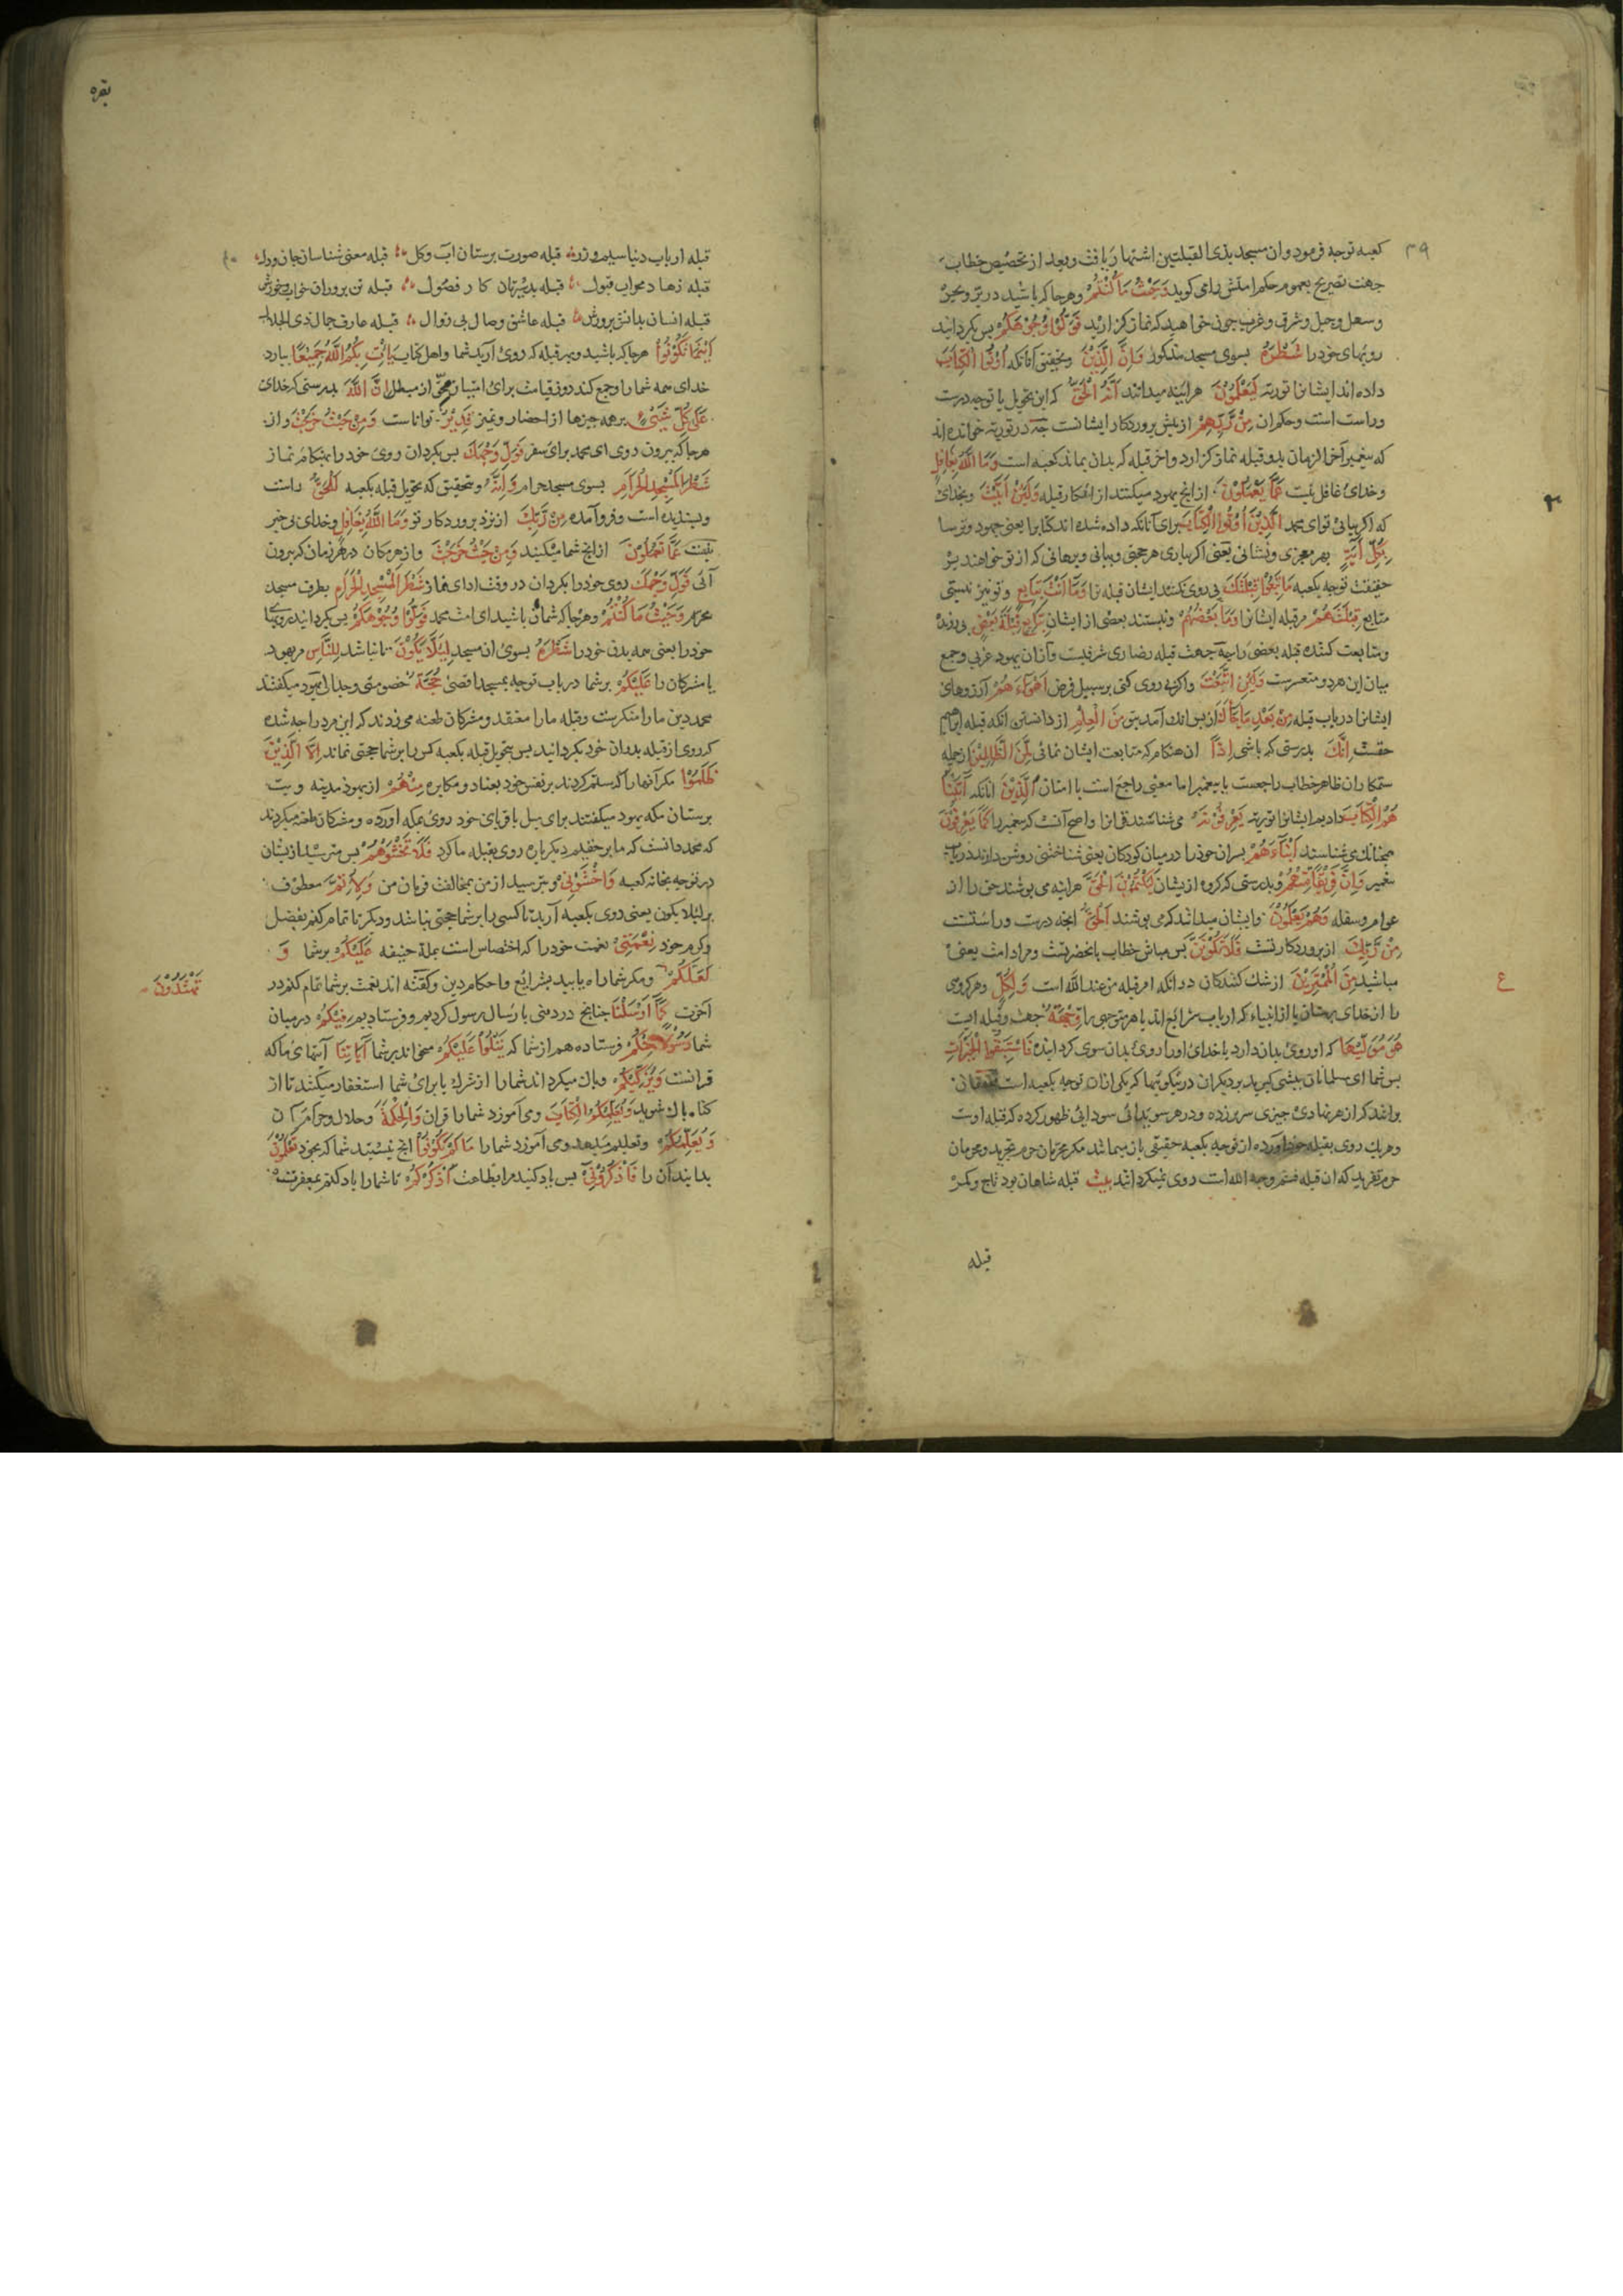 ۳۹
کعبه توجه فرمود وان مسجد بذی القبلتین اشتهار یافت وبعد از تخصیص خطاب
جهت تصریح بعموم حکم امتش را می کوید وَحَیْثُ مَا کُنْتُمْ وهرجا که باشید در بر وبحر
وسهل وجبل وشرق وغرب چون خواهید که نماز کزارید فَوَلُّوْا وُجُوْهَکُمْ پس بکردانید
رویهای خود را شَطْرَهُ بسوی مسجد مذکور وَاِنَّ الَّذِیْنَ وبتحقیق آنانکه اُوْتُوا الْکِتَابَ
داده اند ایشانرا توریة لَیَعْلَمُوْنَ هراینه میدانند اَنَّهُ الْحَقُّ که این تحویل یا توجه درست
وراست است وحکم ان مِنْ رَّبِّهِمْ از پیش پروردکار ایشانست چه در توریة خوانده اند
که پیغمبر آخر الزمان بدو قبله نماز کزارد واخر قبله که بدان بماند کعبه است وَمَا اللّٰهُ بِغَافِلٍ
وخدای غافل نیست عَمَّا یَعْمَلُوْنَ از انچه یهود میکنند از انکار قبله وَلَئِنْ اَتَیْتَ وبخدای
که اکر بیائی تو ای محمد الَّذِیْنَ اُوْتُوا الْکِتَابَ برای آنانکه داده شده اند کتابرا یعنی جهود وترسا
بِکُلِّ اٰیَةٍ بهر معجزی ونشانی یعنی اکر بیاری هر حجتی وبیانی وبرهانی که از تو خواهند بر
حقیقت توجه بکعبه مَا تَبِعُوْا قِبْلَتَکَ پی روی نکنند ایشان قبله ترا وَمَا اَنْتَ بِتَابِعٍ وتو نیز نیستی
متابع قِبْلَتَهُمْ مر قبله ایشانرا وَمَا بَعْضُهُمْ ونیستند بعضی از ایشان بِتَابِعٍ قِبْلَةَ بَعْضٍ پی رونده
ومتابعت کننده قبله بعضی را چه جهت قبله نصاری شرقیست وآزان یهود غربی وجمع
میان این هر دو متعسرست وَلَئِنِ اتَّبَعْتَ واکر پی روی کنی بر سبیل فرض اَهْوَاءَهُمْ آرزوهای
ایشانرا در باب قبله مِنْ بَعْدِ مَا جَاءَکَ از پس انک آمد بتو مِنَ الْعِلْمِ از دانستن انکه قبله ابراهیم
حقست اِنَّکَ بدرستی که باشی اِذًا ان هنکام که متابعت ایشان نمائی لَمِنَ الظَّالِمِیْنَ از جمله
ستمکاران ظاهر خطاب راجعست بپیغمبر اما معنی راجع است با امتان اَلَّذِیْنَ انانکه اٰتَیْنَا
هُمُ الْکِتَابَ دادیم ایشانرا توریة یَعْرِفُوْنَهُ می شناسند قرانرا واصح آنست که پیغمبر را کَمَا یَعْرِفُوْنَ
همچنانک می شناسند اَبْنَاءَهُمْ پسران خودرا در میان کودکان یعنی شناختنی روشن دارند در باب
پیغمبر وَاِنَّ فَرِیْقًا مِنْهُمْ وبدرستی که کروه از یشان لَیَکْتُمُوْنَ الْحَقَّ هراینه می پوشند حق را از
عوام وسفله وَهُمْ یَعْلَمُوْنَ وایشان میدانند که می پوشند اَلْحَقُّ انچه درست وراستست
مِنْ رَّبِّکَ از پروردکار تست فَلَا تَکُوْنَنَّ پس مباش خطاب بانحضرتست ومراد امت یعنی
مباشید مِنَ الْمُمْتَرِیْنَ از شک کنندکان در انکه امر قبله من عند اللّٰه است وَلِکُلٍّ وهر کروهی
را از خدای پرستان یا از انبیاء که ارباب شرایع اند یا هر متوجهی را وِجْهَةٌ جهت وقبله است
هُوَ مُوَلِّیْهَا که او روی بدان دارد یا خدای اورا روی بدان سوی کردانیده فَاسْتَبِقُوا الْخَیْرَاتِ
پس شما ای مسلمانان پیشی کیرید بر دیکران در نیکوئیها که یکی ازان توجه بکعبه است
برانند که از هر نهادی چیزی سر برزده ودر هر سویدائی سودایی ظهور کرده که قبله اوست
وهریک روی بقبله خود آورده از توجه بکعبه حقیقی باز میمانند مکر محرمان حرم تجرید ومحرمان
حرم تفرید که ان قبله فثم وجه اللّٰه است روی نمیکردانند بیت قبله شاهان بود تاج وکمر
قبله
ع
بقره
۴۰
قبله ارباب دنیا سیم وزر قبله صورت پرستان آب وکل قبله معنی شناسان جان ودل
قبله زهاد محراب قبول قبله بدسیرتان کار فضول قبله تن پروران خواب وخورش
قبله انسان بدانش پرورش قبله عاشق وصال بی زوال قبله عارف جمال ذی الجلال
اَیْنَمَا تَکُوْنُوْا هرجا که باشید وبهر قبله که روی آرید شما واهل کتاب یَاْتِ بِکُمُ اللّٰهُ جَمِیْعًا بیارد
خدای همه شما را وجمع کند روز قیامت برای امتیاز محق از مبطل اِنَّ اللّٰهَ بدرستی که خدای
عَلٰی کُلِّ شَیْءٍ برهمه چیزها از احضار وتمیز قَدِیْرٌ توانا ست وَمِنْ حَیْثُ خَرَجْتَ واز
هرجا که بیرون روی ای محمد برای سفر فَوَلِّ وَجْهَکَ پس بکردان روی خودرا بهنکام نماز
شَطْرَ الْمَسْجِدِ الْحَرَامِ بسوی مسجد حرام وَاِنَّهُ وبتحقیق که تحویل قبله بکعبه لَلْحَقُّ راست
وپسندیده است وفروآمده مِنْ رَّبِّکَ از نزد پروردکار تو وَمَا اللّٰهُ بِغَافِلٍ وخدای بی خبر
نیست عَمَّا تَعْمَلُوْنَ از انچ شما میکنید وَمِنْ حَیْثُ خَرَجْتَ واز هر مکان در هر زمان که بیرون
آئی فَوَلِّ وَجْهَکَ روی خودرا بکردان در وقت ادای نماز شَطْرَ الْمَسْجِدِ الْحَرَامِ بطرف مسجد
محرم وَحَیْثُ مَا کُنْتُمْ وهرجا که شما باشید ای امت محمد فَوَلُّوْا وُجُوْهَکُمْ پس بکردانید رویها
خودرا یعنی همه بدن خودرا شَطْرَهُ بسوی ان مسجد لِئَلَّا یَکُوْنَ تا نباشد لِلنَّاسِ مر یهود
یا مشرکان را عَلَیْکُمْ بر شما در باب توجه بمسجد اقصی حُجَّةٌ خصومتی وجدال یهود میکفتند
محمد دین مارا منکرست وقبله مارا معتقد ومشرکان طعنه می زدند که این مرد را چه شده
که روی از قبله پدران خود بکردانید پس بتحویل قبله بکعبه کس را بر شما حجتی نماند اِلَّا الَّذِیْنَ
ظَلَمُوْا مکر آنها را که ستم کردند بر نفس خود بعناد ومکابره مِنْهُمْ از یهود مدینه وبت
پرستان مکه یهود میکفتند برای میل باقربای خود روی بمکه آورده ومشرکان طعنه میکردند
که محمد دانست که ما بر حقیم دیکرباره روی بقبله ما کرد فَلَا تَخْشَوْهُمْ پس مترسید از یشان
در توجه بخانه کعبه وَاخْشَوْنِیْ وبترسید از من بمخالفت فرمان من وَلِاُتِمَّ معطوف
بر لئلا یکون یعنی روی بکعبه آرید تا کسی را بر شما حجتی نباشد ودیکر تا تمام کنم بفضل
وکرم خود نِعْمَتِیْ نعمت خودرا که اختصاص است بملة حنیفه عَلَیْکُمْ بر شما وَ
لَعَلَّکُمْ ومکر شما راه یابید بشرایع واحکام دین وکفته اند نعمت بر شما تمام کنم در
تَهْتَدُوْنَ
آخرت کَمَا اَرْسَلْنَا چنانچ در دنیی بارسال رسول کردیم وفرستادیم فِیْکُمْ در میان
شما رَسُوْلًا مِنْکُمْ فرستاده هم از شما که یَتْلُوْا عَلَیْکُمْ میخواند بر شما اٰیَاتِنَا آیتهای ما که
قرانست وَیُزَکِّیْکُمْ وپاک میکرداند شما را از شرک یا برای شما استغفار میکند تا از
کناه پاک شوید وَیُعَلِّمُکُمُ الْکِتَابَ ومی آموزد شما را قران وَالْحِکْمَةَ وحلال وحرام
وَیُعَلِّمُکُمْ وتعلیم میدهد ومی آموزد شما را مَا لَمْ تَکُوْنُوْا انچ نیستید شما که بخود تَعْلَمُوْنَ
بدانید آن را فَاذْکُرُوْنِیْ پس یاد کنید مرا بطاعت اَذْکُرْکُمْ تا شما را یاد کنم بمغفرت